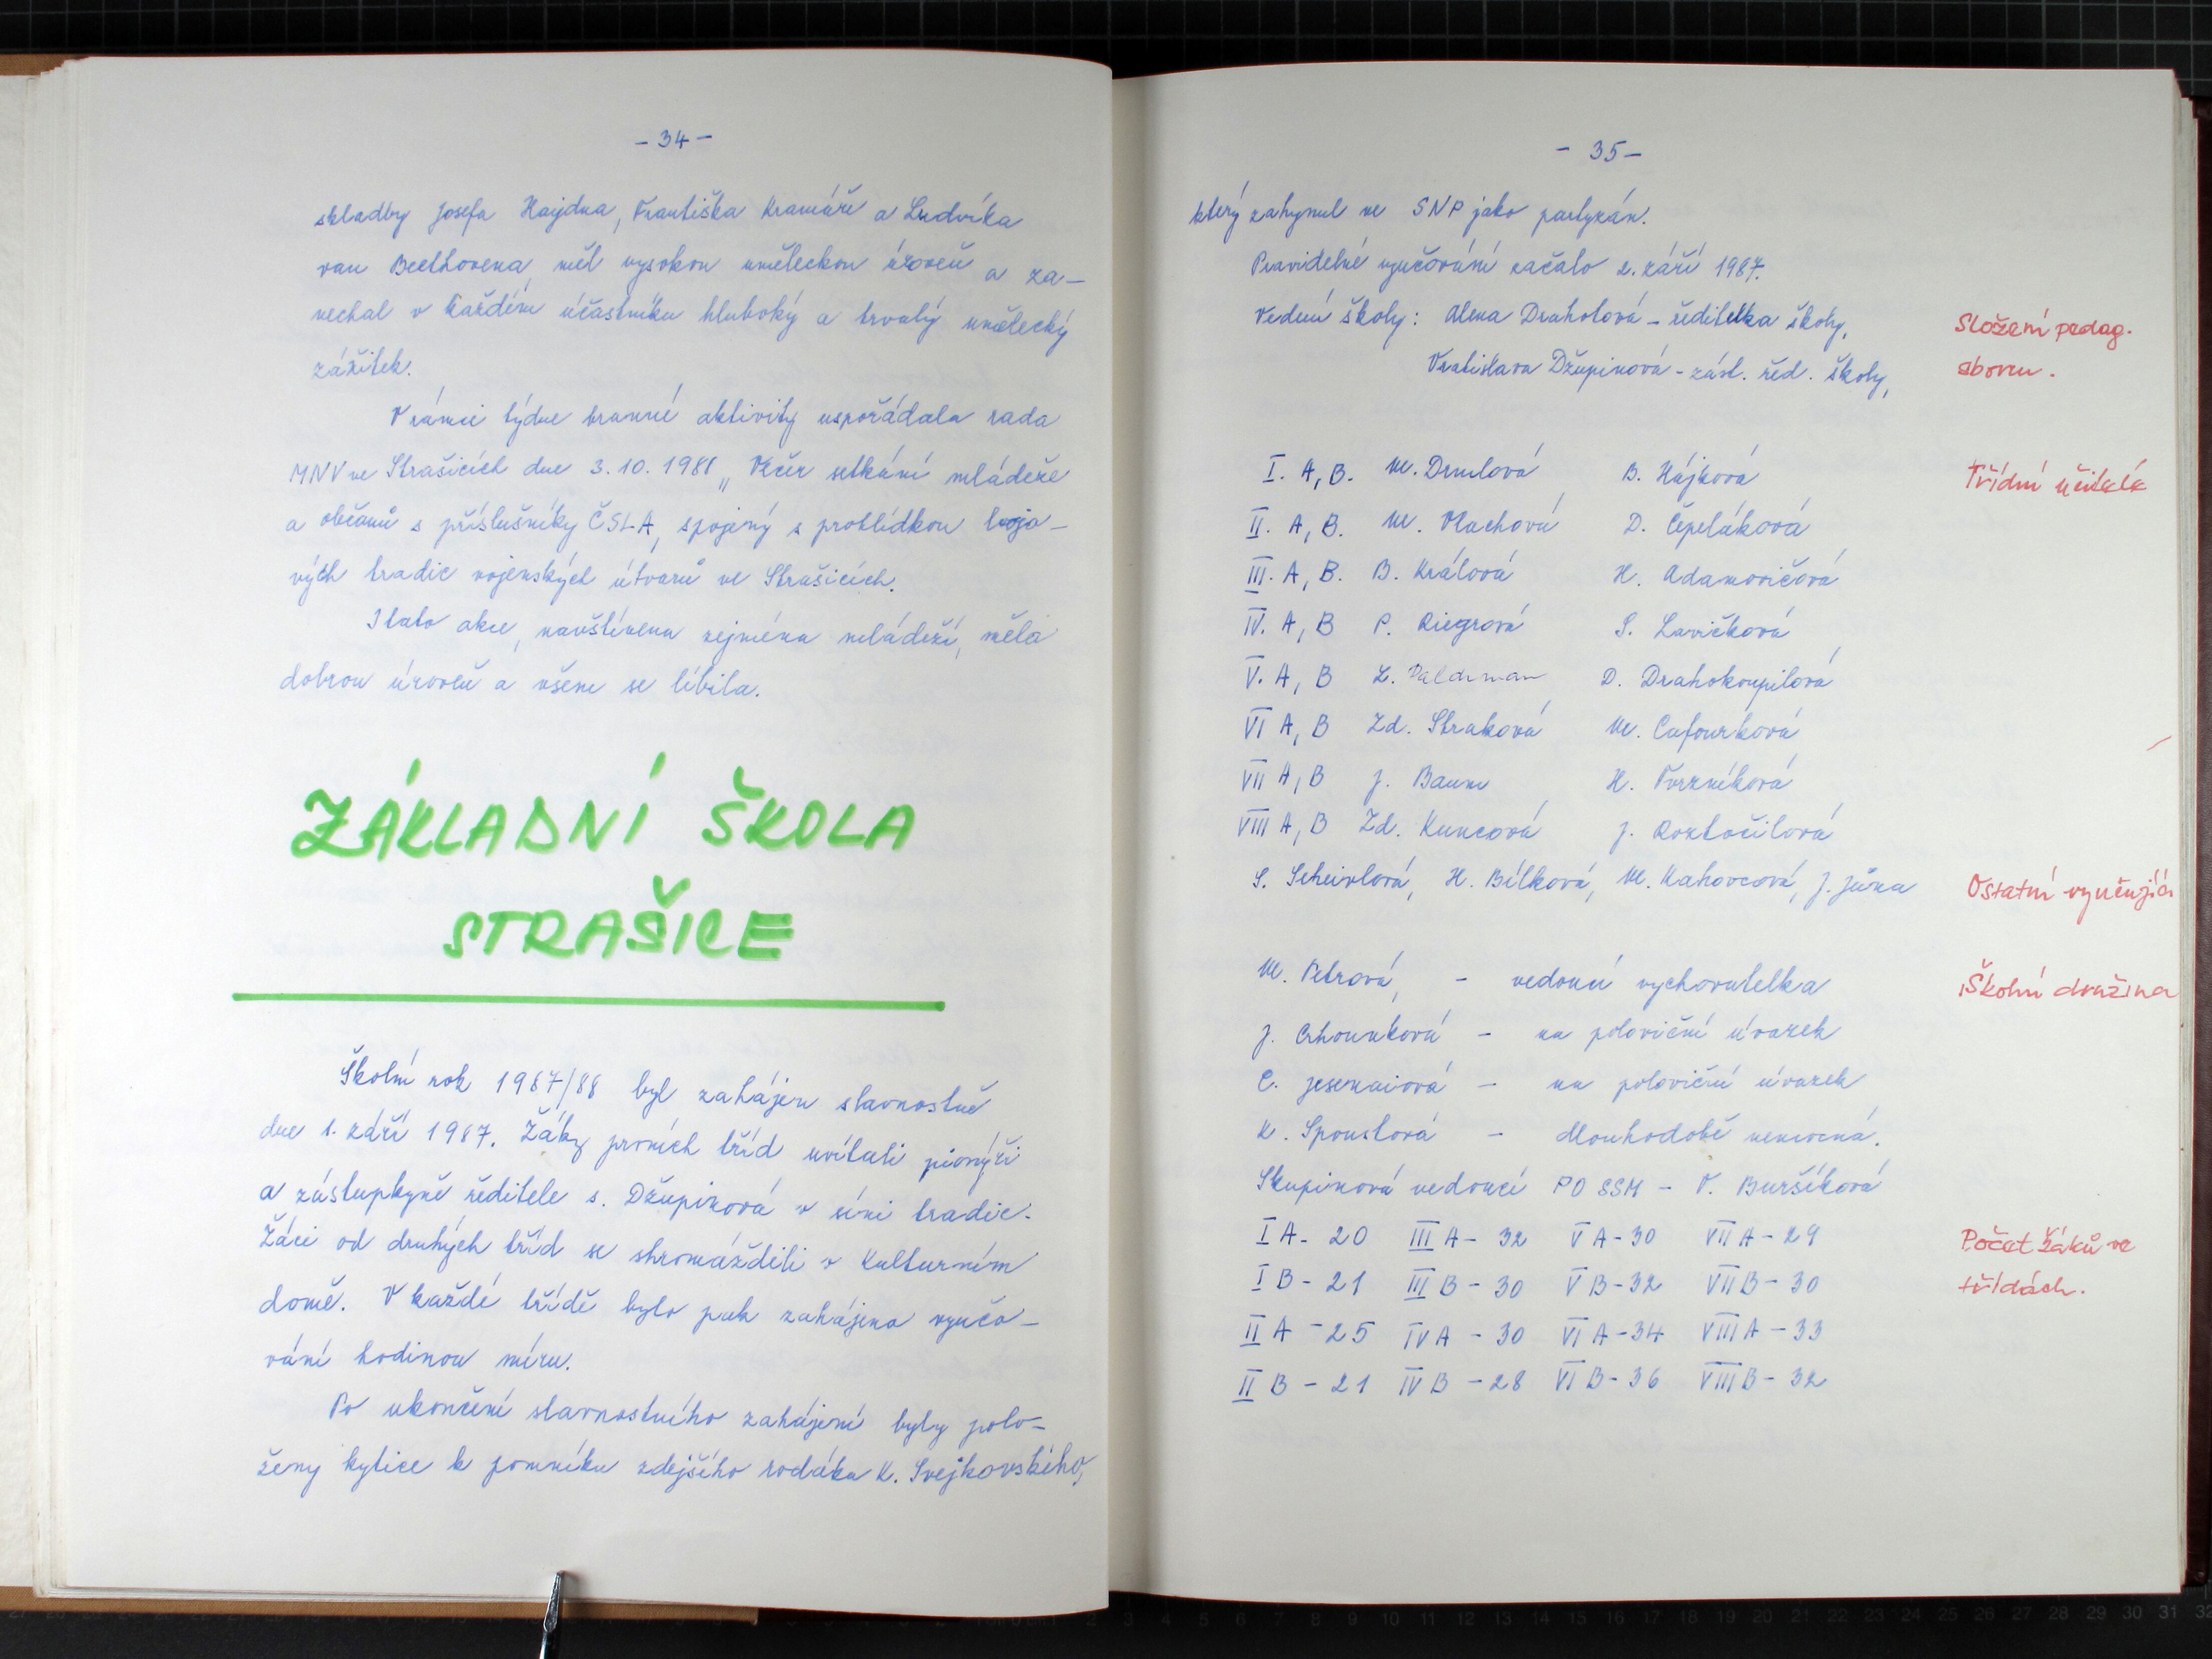 - 34 -
skladby Josefa Haydna, Františka Kramáře a Ludvíka
van Beethovena, měl vysokou uměleckou úroveň a za-
nechal v každém účastníku hluboký a trvalý umělecký
zážitek.
V rámci týdne branné aktivity uspořádala rada
MNV ve Strašicích dne 3. 10. 1981 „ Večer setkání mládeže
a občanů s příslušníky ČSLA, spojený s prohlídkou bojo-
vých tradic vojenských útvarů ve Strašicích.
I tato akce, navštívena zejména mládeží, měla
dobrou úroveň a všem se líbila.
ZÁKLADNÍ ŠKOLA
STRAŠICE
Školní rok 1987/88 byl zahájen slavnostně
dne 1. září 1987. Žáky prvních tříd uvítali pionýři
a zástupkyně ředitele s. Džupinová v síni tradic.
Žáci od druhých tříd se shromáždili v Kulturním
domě. V každé třídě bylo pak zahájeno vyučo-
vání hodinou míru.
Po ukončení slavnostního zahájení byly polo-
ženy kytice k pomníku zdejšího rodáka K. Svejkovského,
- 35 -
který zahynul ve SNP jako partyzán.
Pravidelné vyučování začalo 2. září 1987.
Vedení školy: Alena Draholová - ředitelka školy,
Vratislava Džupinová - zást. řed. školy,
Složení pedag.
sboru.
I. A, B. M. Drmlová B. Hájková
Třídní učitelé
II. A, B. M. Vlachová D. Čepeláková
III. A, B. B. Králová H. Adamovičová
IV. A, B P. Riegrová S. Lavičková
V. A, B L. Valdman D. Drahokoupilová
VI A, B Zd. Straková M. Cafourková
VII A, B J. Baum H. Tvrzníková
VIII A, B Zd. Kuncová J. Roztočilová
S. Scheirlová, H. Bílková, M. Kahovcová, J. Jůna
Ostatní vyučující
M. Petrová, - vedoucí vychovatelka
Školní družina
J. Crhounková - na poloviční úvazek
C. Jesenaiová - na poloviční úvazek
K. Spoustová - dlouhodobě nemocná.
Skupinová vedoucí PO SSM - V. Buršíková
I A - 20 III A - 32 V A - 30 VII A - 29
Počet žáků ve
I B - 21 III B - 30 V B - 32 VII B - 30
třídách.
II A - 25 IV A - 30 VI A - 34 VIII A - 33
II B - 21 IV B - 28 VI B - 36 VIII B - 32